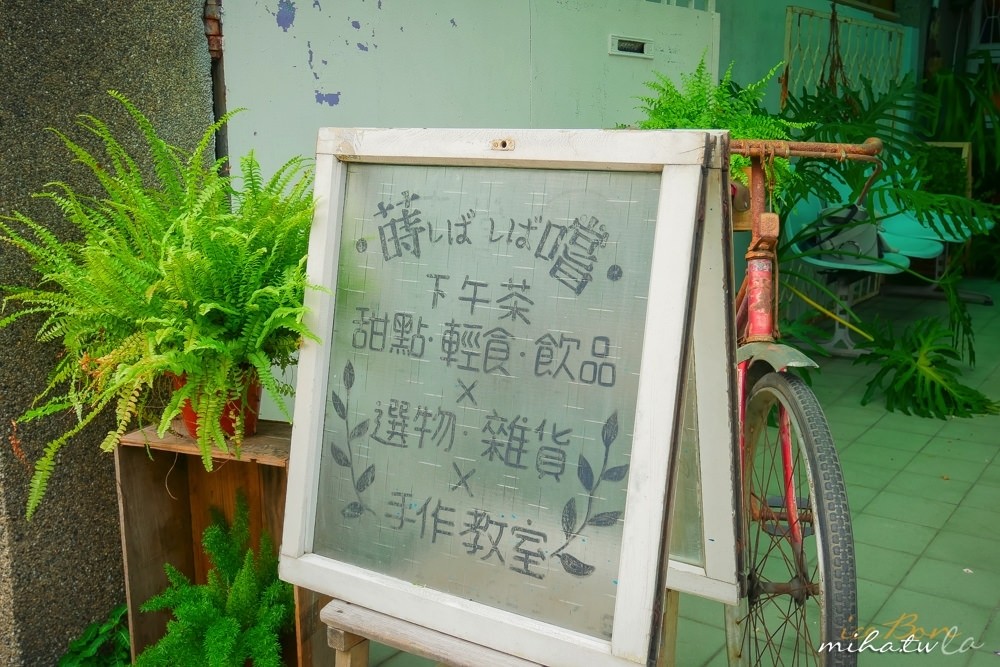 • 蒔しばしば嚐 •
下午茶
甜點·輕食·飲品
×
選物·雜貨
×
手作教室
mihatwla